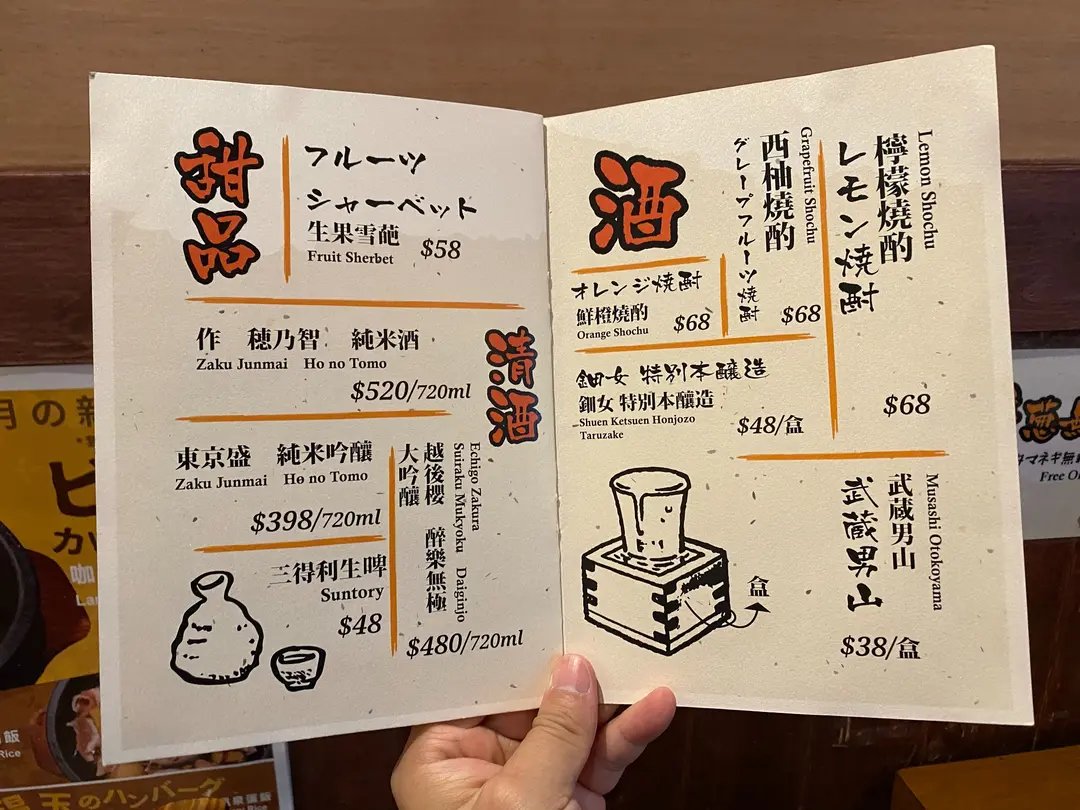 甜品
フルーツ
シャーベット
生果雪葩
Fruit Sherbet
$58
清酒
作 穂乃智 純米酒
Zaku Junmai Ho no Tomo
$520/720ml
東京盛 純米吟釀
Zaku Junmai Ho no Tomo
$398/720ml
三得利生啤
Suntory
$48
Echigo Zakura
Suiraku Mukyoku Daiginjo
越後櫻 醉樂無極
大吟釀
$480/720ml
酒
オレンジ焼酎
鮮橙燒酌
Orange Shochu
$68
Grapefruit Shochu
西柚燒酌
グレープフルーツ焼酎
$68
Lemon Shochu
檸檬燒酌
レモン焼酎
$68
鈿女 特別本醸造
鈿女 特別本釀造
Shuen Ketsuen Honjozo
Taruzake
$48/盒
盒
Musashi Otokoyama
武蔵男山
武蔵男山
$38/盒
月の新
カッ
咖
飯
Rice
玉のハンバーグ
マネギ無
Free O